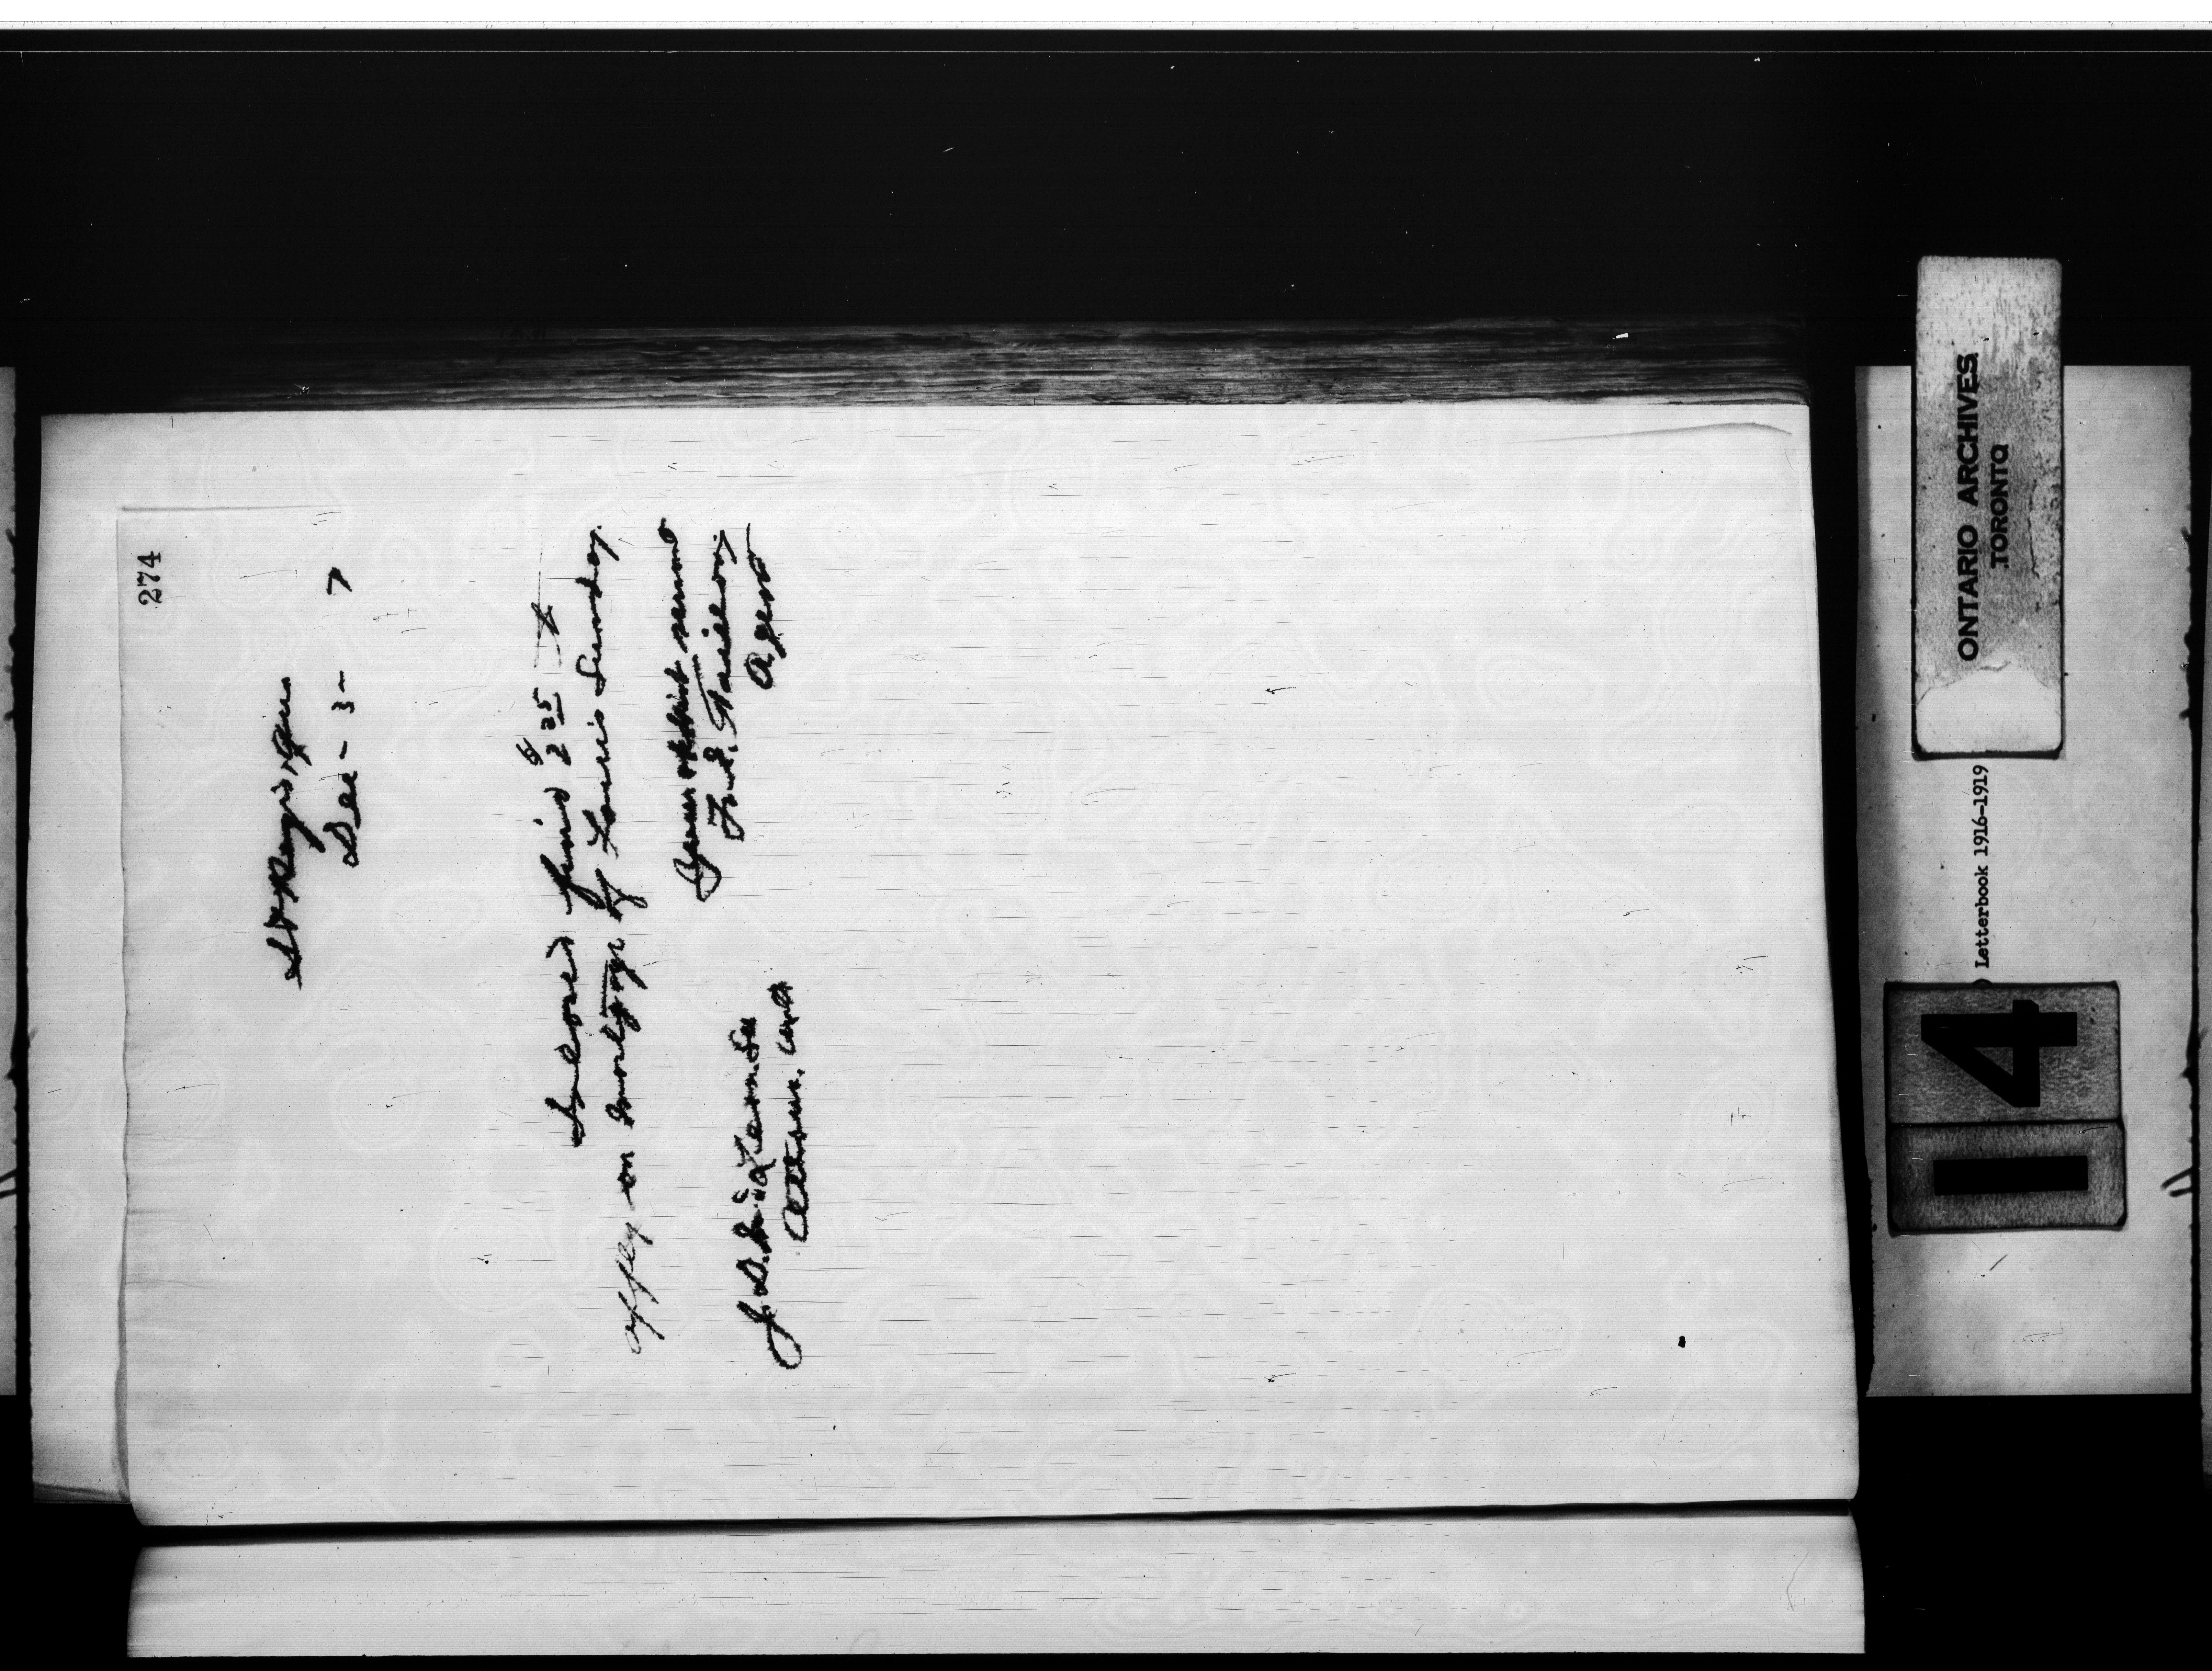 274
St Regis Que.
Dec - 3 - 7
Inclosed find $2.25 to
apply on mortgage of Louis Sunday.
Your obedient servant
F. E. Taillon
Agent
J. D. McLean
Ottawa. Ont
ONTARIO ARCHIVES
TORONTO
Letterbook 1916-1919
14